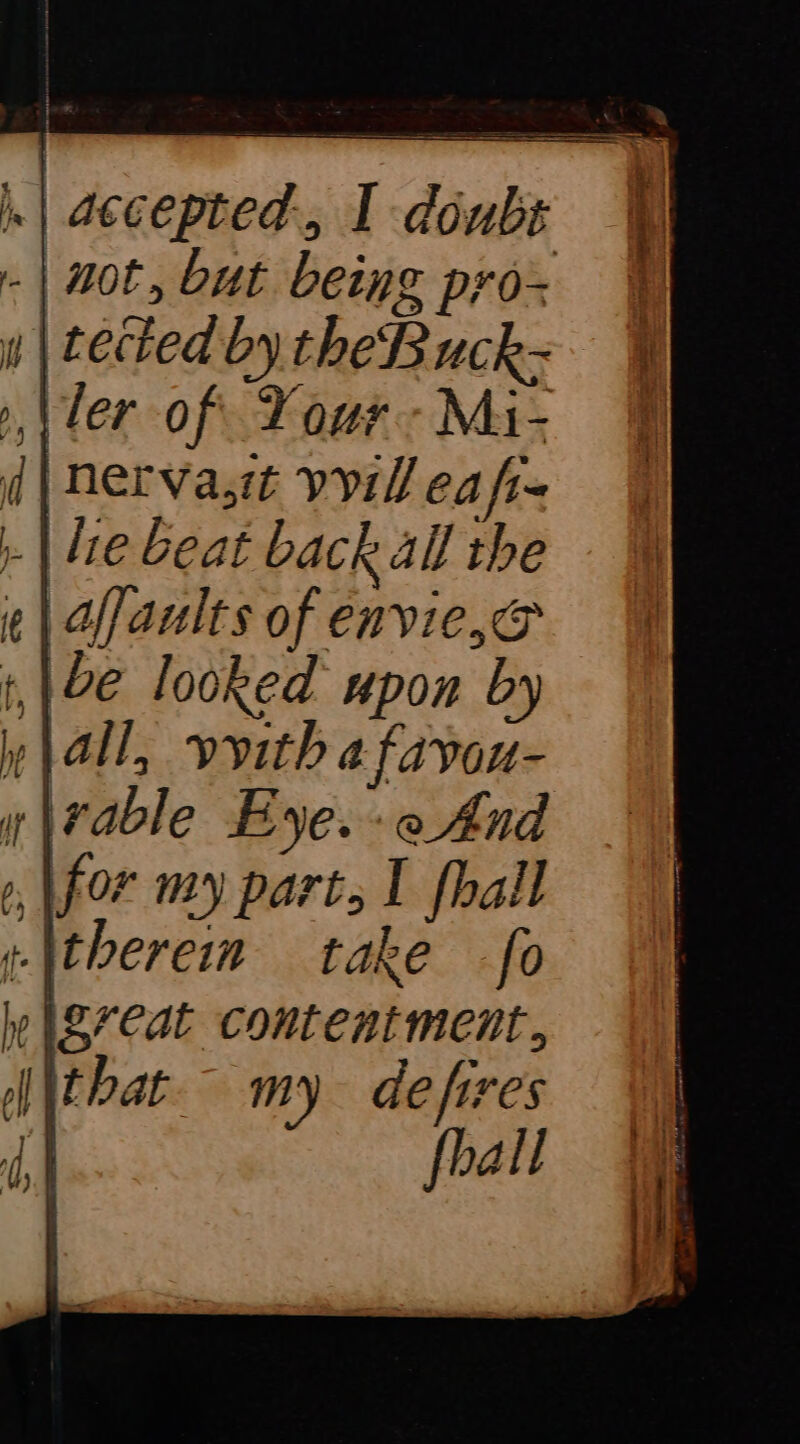 accepted, I doubt
not, but being pro-
tected by the Buck-
ler of Your Mi-
nerva, it vvill eaſi-
lie beat back all the
aſſaults of envie, &
be looked upon by
all, vvith a favou-
rable Eye. And
for my part, I ſhall
therein take ſo
great contentment,
that my deſires
ſhall